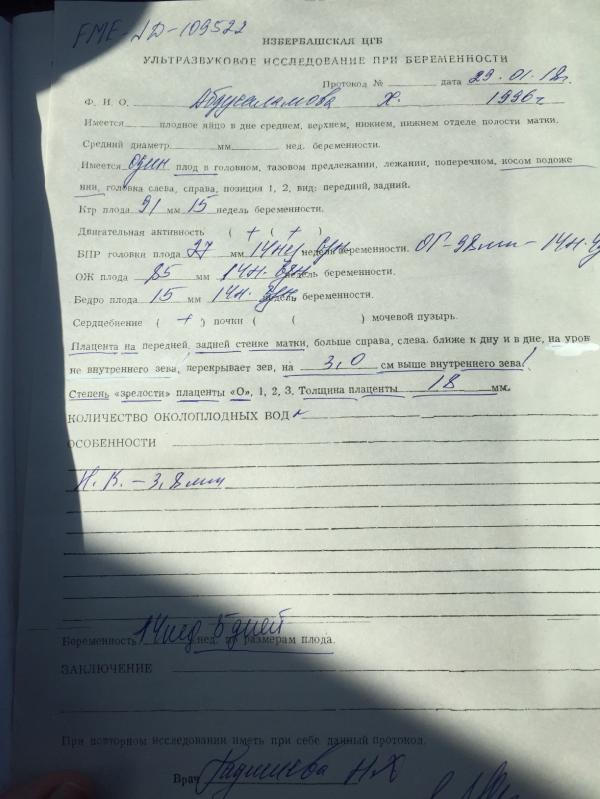 FME JD-109522
ИЗБЕРБАШСКАЯ ЦГБ
УЛЬТРАЗВУКОВОЕ ИССЛЕДОВАНИЕ ПРИ БЕРЕМЕННОСТИ
Протокол № дата 29.01.18г.
Ф. И. О. Абдусаламова Х. 1996г
Имеется плодное яйцо в дне среднем, верхнем, нижнем, нижнем отделе полости матки.
Средний диаметр мм нед. беременности.
Имеется один плод в головном, тазовом предлежании, лежании, поперечном, косом водоже
нии, головка слева, справа, позиция 1, 2, вид: передний, задний.
Ктр плода 91 мм 15 недель беременности.
Двигательная активность ( + ( + )
БПР головки плода 27 мм 14нд недель беременности. ОГ-98мм-14н.
ОЖ плода 85 мм 14н. недель беременности.
Бедро плода 15 мм 14н. недель беременности.
Сердцебиение ( + ) почки ( ( ) мочевой пузырь.
Плацента на передней, задней стенке матки, больше справа, слева. ближе к дну и в дне, на уров
не внутреннего зева, перекрывает зев, на 3,0 см выше внутреннего зева!
Степень «зрелости» плаценты «О», 1, 2, 3. Толщина плаценты 18 мм.
КОЛИЧЕСТВО ОКОЛОПЛОДНЫХ ВОД
ОСОБЕННОСТИ
Н.К. – 3,8мм
Беременность 14нед 5дней нед. по размерам плода.
ЗАКЛЮЧЕНИЕ
При повторном исследовании иметь при себе данный протокол.
Врач